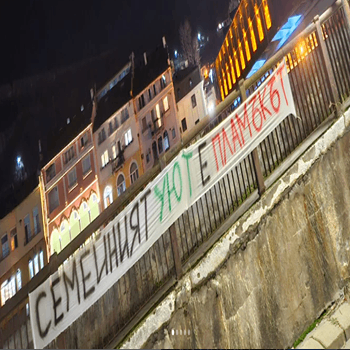 СЕМЕЙНИЯТ УЮТ Е ПЛАМЪКЪТ